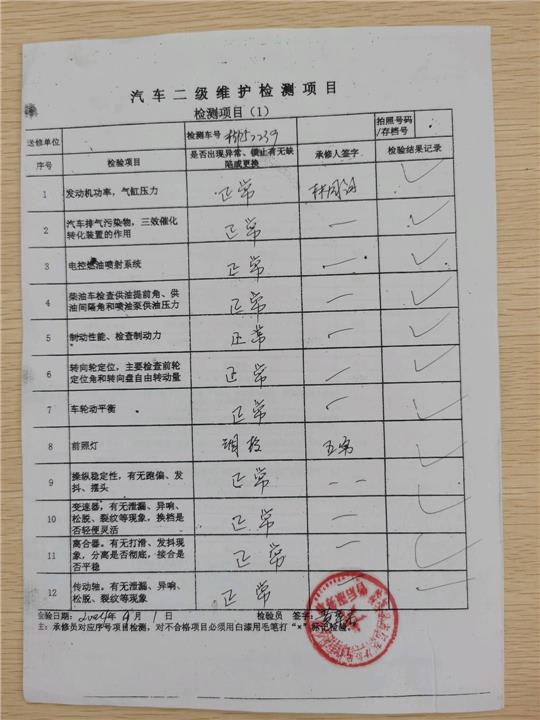 汽车二级维护检测项目
检测项目（1）
送修单位 检测车号 拍照号码/存档号
序号 检验项目 是否出现异常、锁止有无缺陷或更换 承修人签字 检验结果记录
1 发动机功率，气缸压力 正常
2 汽车排气污染物，三效催化转化装置的作用 正常 一 ✓
3 电控燃油喷射系统 正常 一 ✓
4 柴油车检查供油提前角、供油间隔角和喷油泵供油压力 正常 一 ✓
5 制动性能、检查制动力 正常 一 ✓
6 转向轮定位，主要检查前轮定位角和转向盘自由转动量 正常 一 ✓
7 车轮动平衡 正常 一 ✓
8 前照灯 调校 正常 ✓
9 操纵稳定性，有无跑偏、发抖、摆头 正常 一一 ✓
10 变速器，有无泄漏、异响、松脱、裂纹等现象，换档是否轻便灵活 正常 一 ✓
11 离合器。有无打滑、发抖现象，分离是否彻底，接合是否平稳 正常 一 ✓
12 传动轴。有无泄漏、异响、松脱、裂纹等现象 正常
验日期：2024年9月1日 检验员 签字：
主：承修员对应序号项目检测，对不合格项目必须用白漆用毛笔打“×”标记检验。